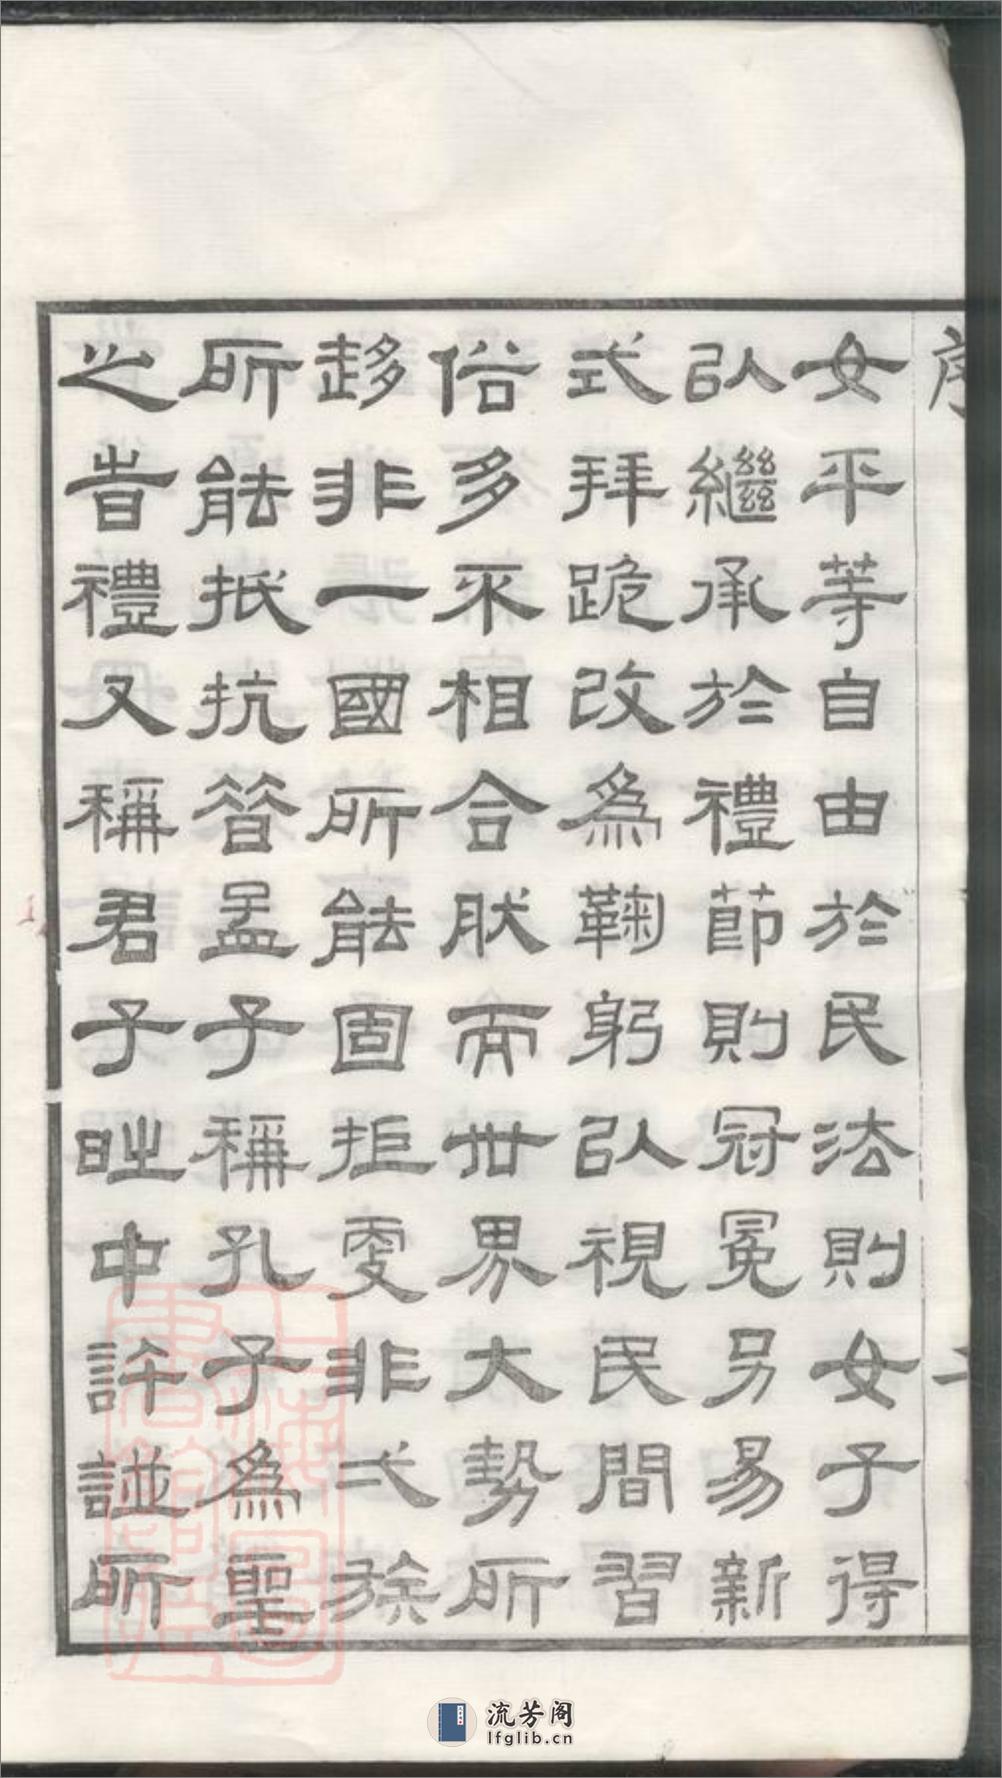 序 二
女平等自由於民法則女子得
以繼承於禮節則冠冕另易新
式拜跪改為鞠躬以視民間習
俗多不相合肰而世界大勢所
趍非一國所能固拒更非弌族
所能抵抗昝孟子稱孔子為聖
之旹禮又稱君子時中許所
流芳阁
lfglib.cn